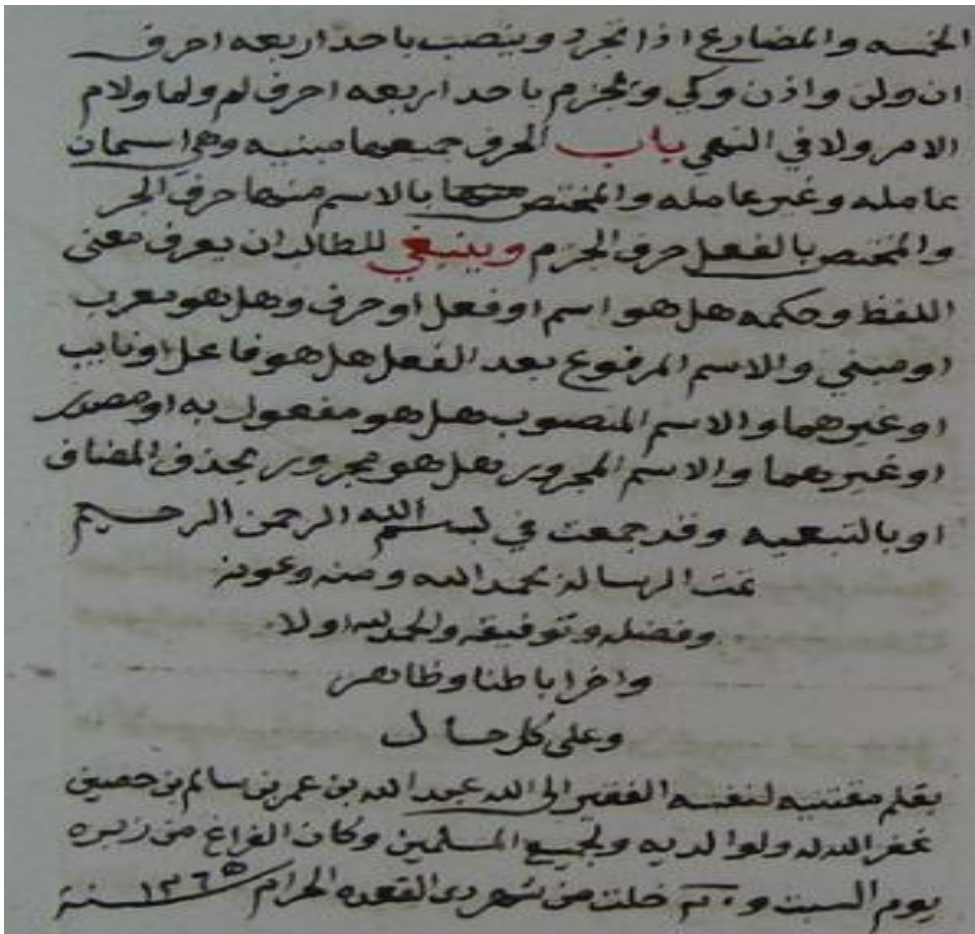 الخمسه والمضارع اذا تجرد وينصب باحد اربعه احرف
ان ولن واذن وكي ويجزم باحد اربعه احرف لم ولما ولام
الامر ولا في النهي باب الحرف جميعها مبنيه وهي اسمان
عامله وغير عامله والمختص بالاسم منها حرف الجر
والمختص بالفعل حرف الجزم وينبغي للطالب ان يعرف معنى
اللفظ وحكمه هل هو اسم او فعل او حرف وهل هو معرب
او مبني والاسم المرفوع بعد الفعل هل هو فاعل او نايب
او غيرهما والاسم المنصوب هل هو مفعول به او مصدر
او غيرهما والاسم المجرور هل هو مجرور بحذف المضاف
او بالتبعيه وقد جمعت في بسم الله الرحمن الرحيم
تمت الرسالة بحمد الله ومنه وعونه
وفضله وتوفيقه والحمد لله اولا
واخرا باطنا وظاهر
وعلى كل حال
بقلم مقتنيه لنفسه الفقير الى الله عبد الله بن عمر بن سالم بن حصين
غفر الله له ولوالديه ولجميع المسلمين وكان الفراغ من زبره
يوم السبت و خلت من شهر ذى القعده الحرام ١٣٦٥ سنة